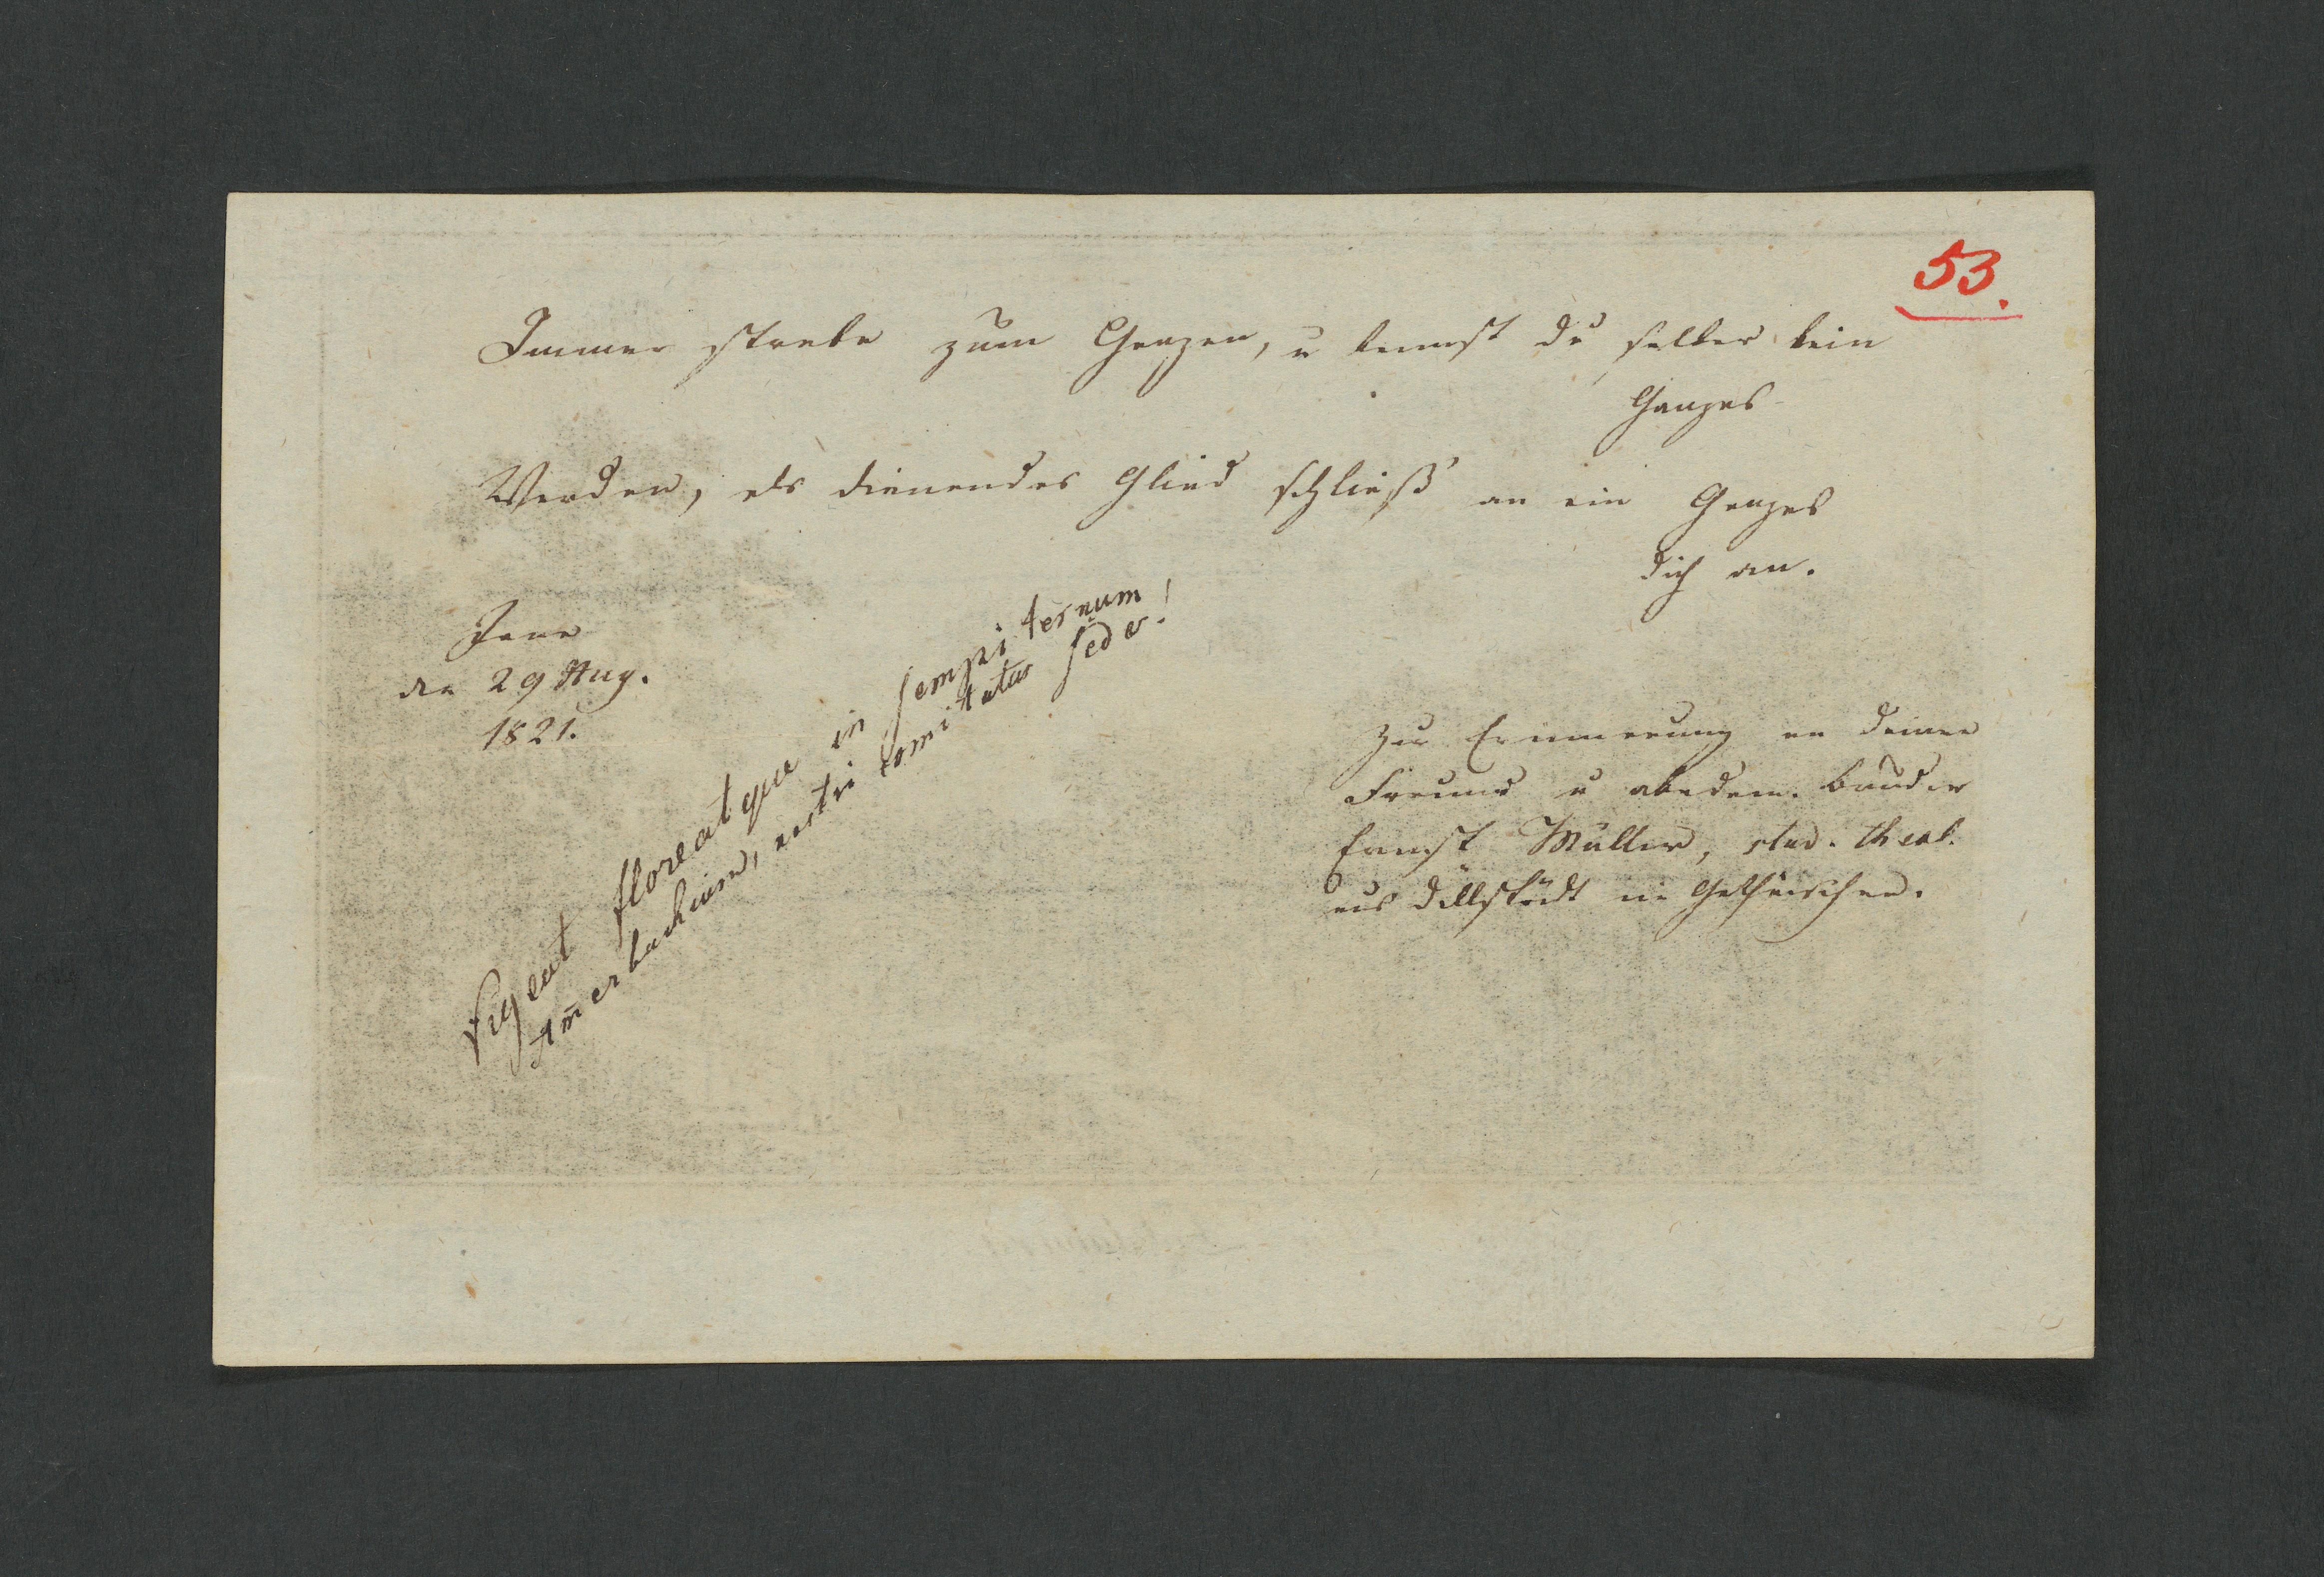 53.
Immer strebe zum Ganzen, u kannst du selber kein
Ganzes
Werden, als dienendes Glied schließ' an ein Ganzes
dich an.
Jena
den 29 Aug.
1821.
Vigeat floreatque in sempiternum
Am̄erbachium, nostri comitatus sedes!
Zur Erinnerung an deinen
Freund u akadem. Bruder
Ernst Müller, stud. theol.
aus Döllstädt im Gothaischen.